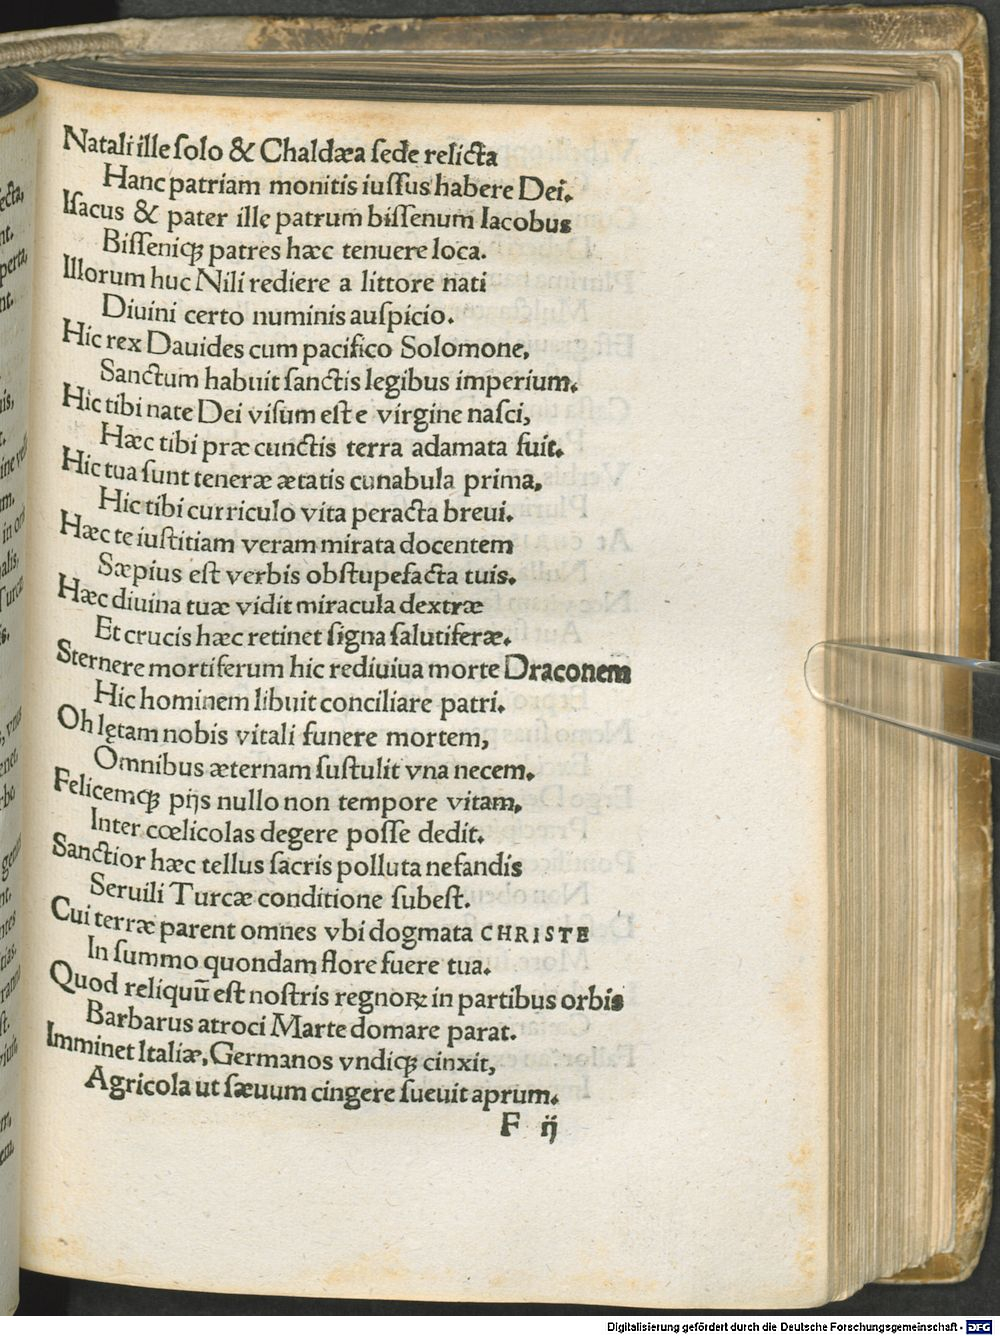 Natali ille ſolo & Chaldæa ſede relicta
Hanc patriam monitis iuſſus habere Dei.
Iſacus & pater ille patrum biſſenum Iacobus
Biſſeniqꝫ patres hæc tenuere loca.
Illorum huc Nili rediere a littore nati
Diuini certo numinis auſpicio.
Hic rex Dauides cum pacifico Solomone,
Sanctum habuit ſanctis legibus imperium.
Hic tibi nate Dei viſum eſt e virgine naſci,
Hæc tibi præ cunctis terra adamata fuit.
Hic tua ſunt teneræ ætatis cunabula prima,
Hic tibi curriculo vita peracta breui.
Hæc te iuſtitiam veram mirata docentem
Sæpius eſt verbis obſtupefacta tuis.
Hæc diuina tuæ vidit miracula dextræ
Et crucis hæc retinet ſigna ſalutiferæ.
Sternere mortiferum hic rediuiua morte Draconem
Hic hominem libuit conciliare patri.
Oh lętam nobis vitali funere mortem,
Omnibus æternam ſuſtulit vna necem.
Felicemqꝫ pijs nullo non tempore vitam,
Inter cœlicolas degere poſſe dedit.
Sanctior hæc tellus ſacris polluta nefandis
Seruili Turcæ conditione ſubeſt.
Cui terræ parent omnes vbi dogmata CHRISTE
In ſummo quondam flore fuere tua.
Quod reliquū eſt noſtris regnoꝝ in partibus orbis
Barbarus atroci Marte domare parat.
Imminet Italiæ, Germanos vndiqꝫ cinxit,
Agricola ut ſæuum cingere ſueuit aprum.
F ij
Digitalisierung gefördert durch die Deutsche Forschungsgemeinschaft - DFG